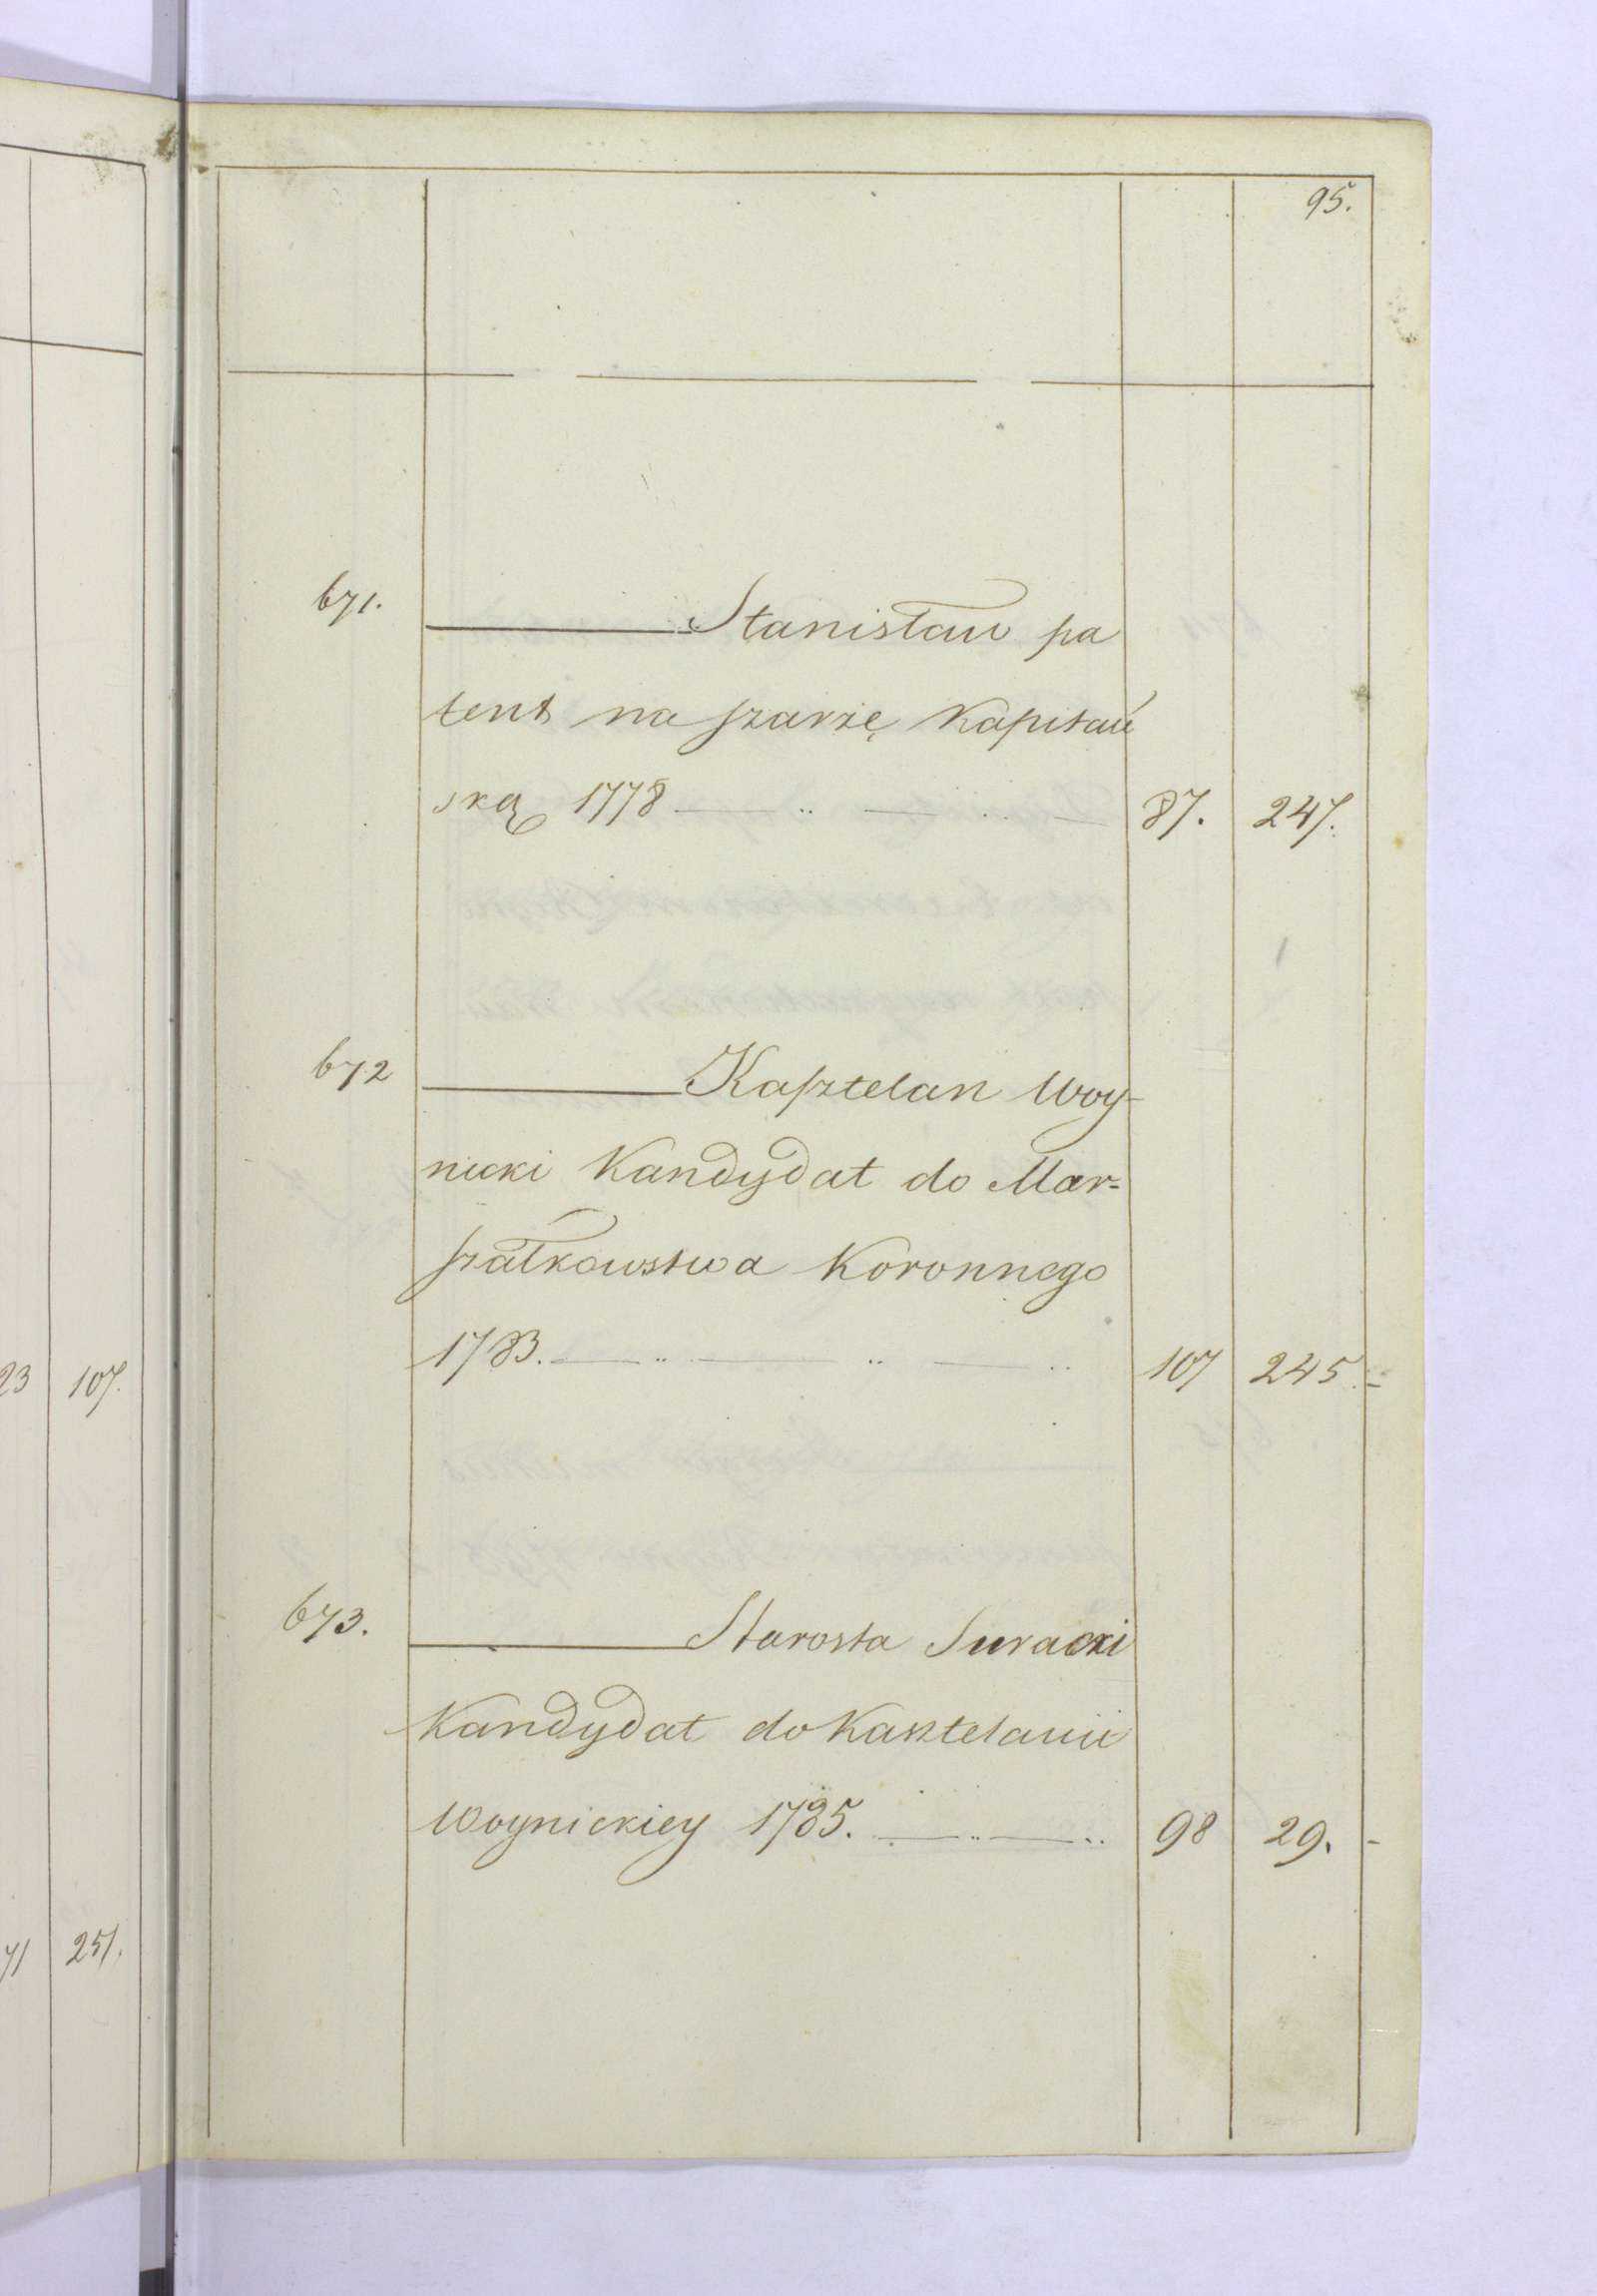 95.
671. ——— Stanisław pa
tent na szarżę Kapitań
ską 1778 — .. — .. — 87. 247.
672 ——— Kasztelan Woy-
nicki Kandydat do Mar=
szałkowstwa Koronnego
1783. — .. — .. — .. 107 245.
673. ——— Starosta Suracki
Kandydat do Kasztelanii
Woynickiey 1785. — .. — .. 98 29.
23 107.
71 251.